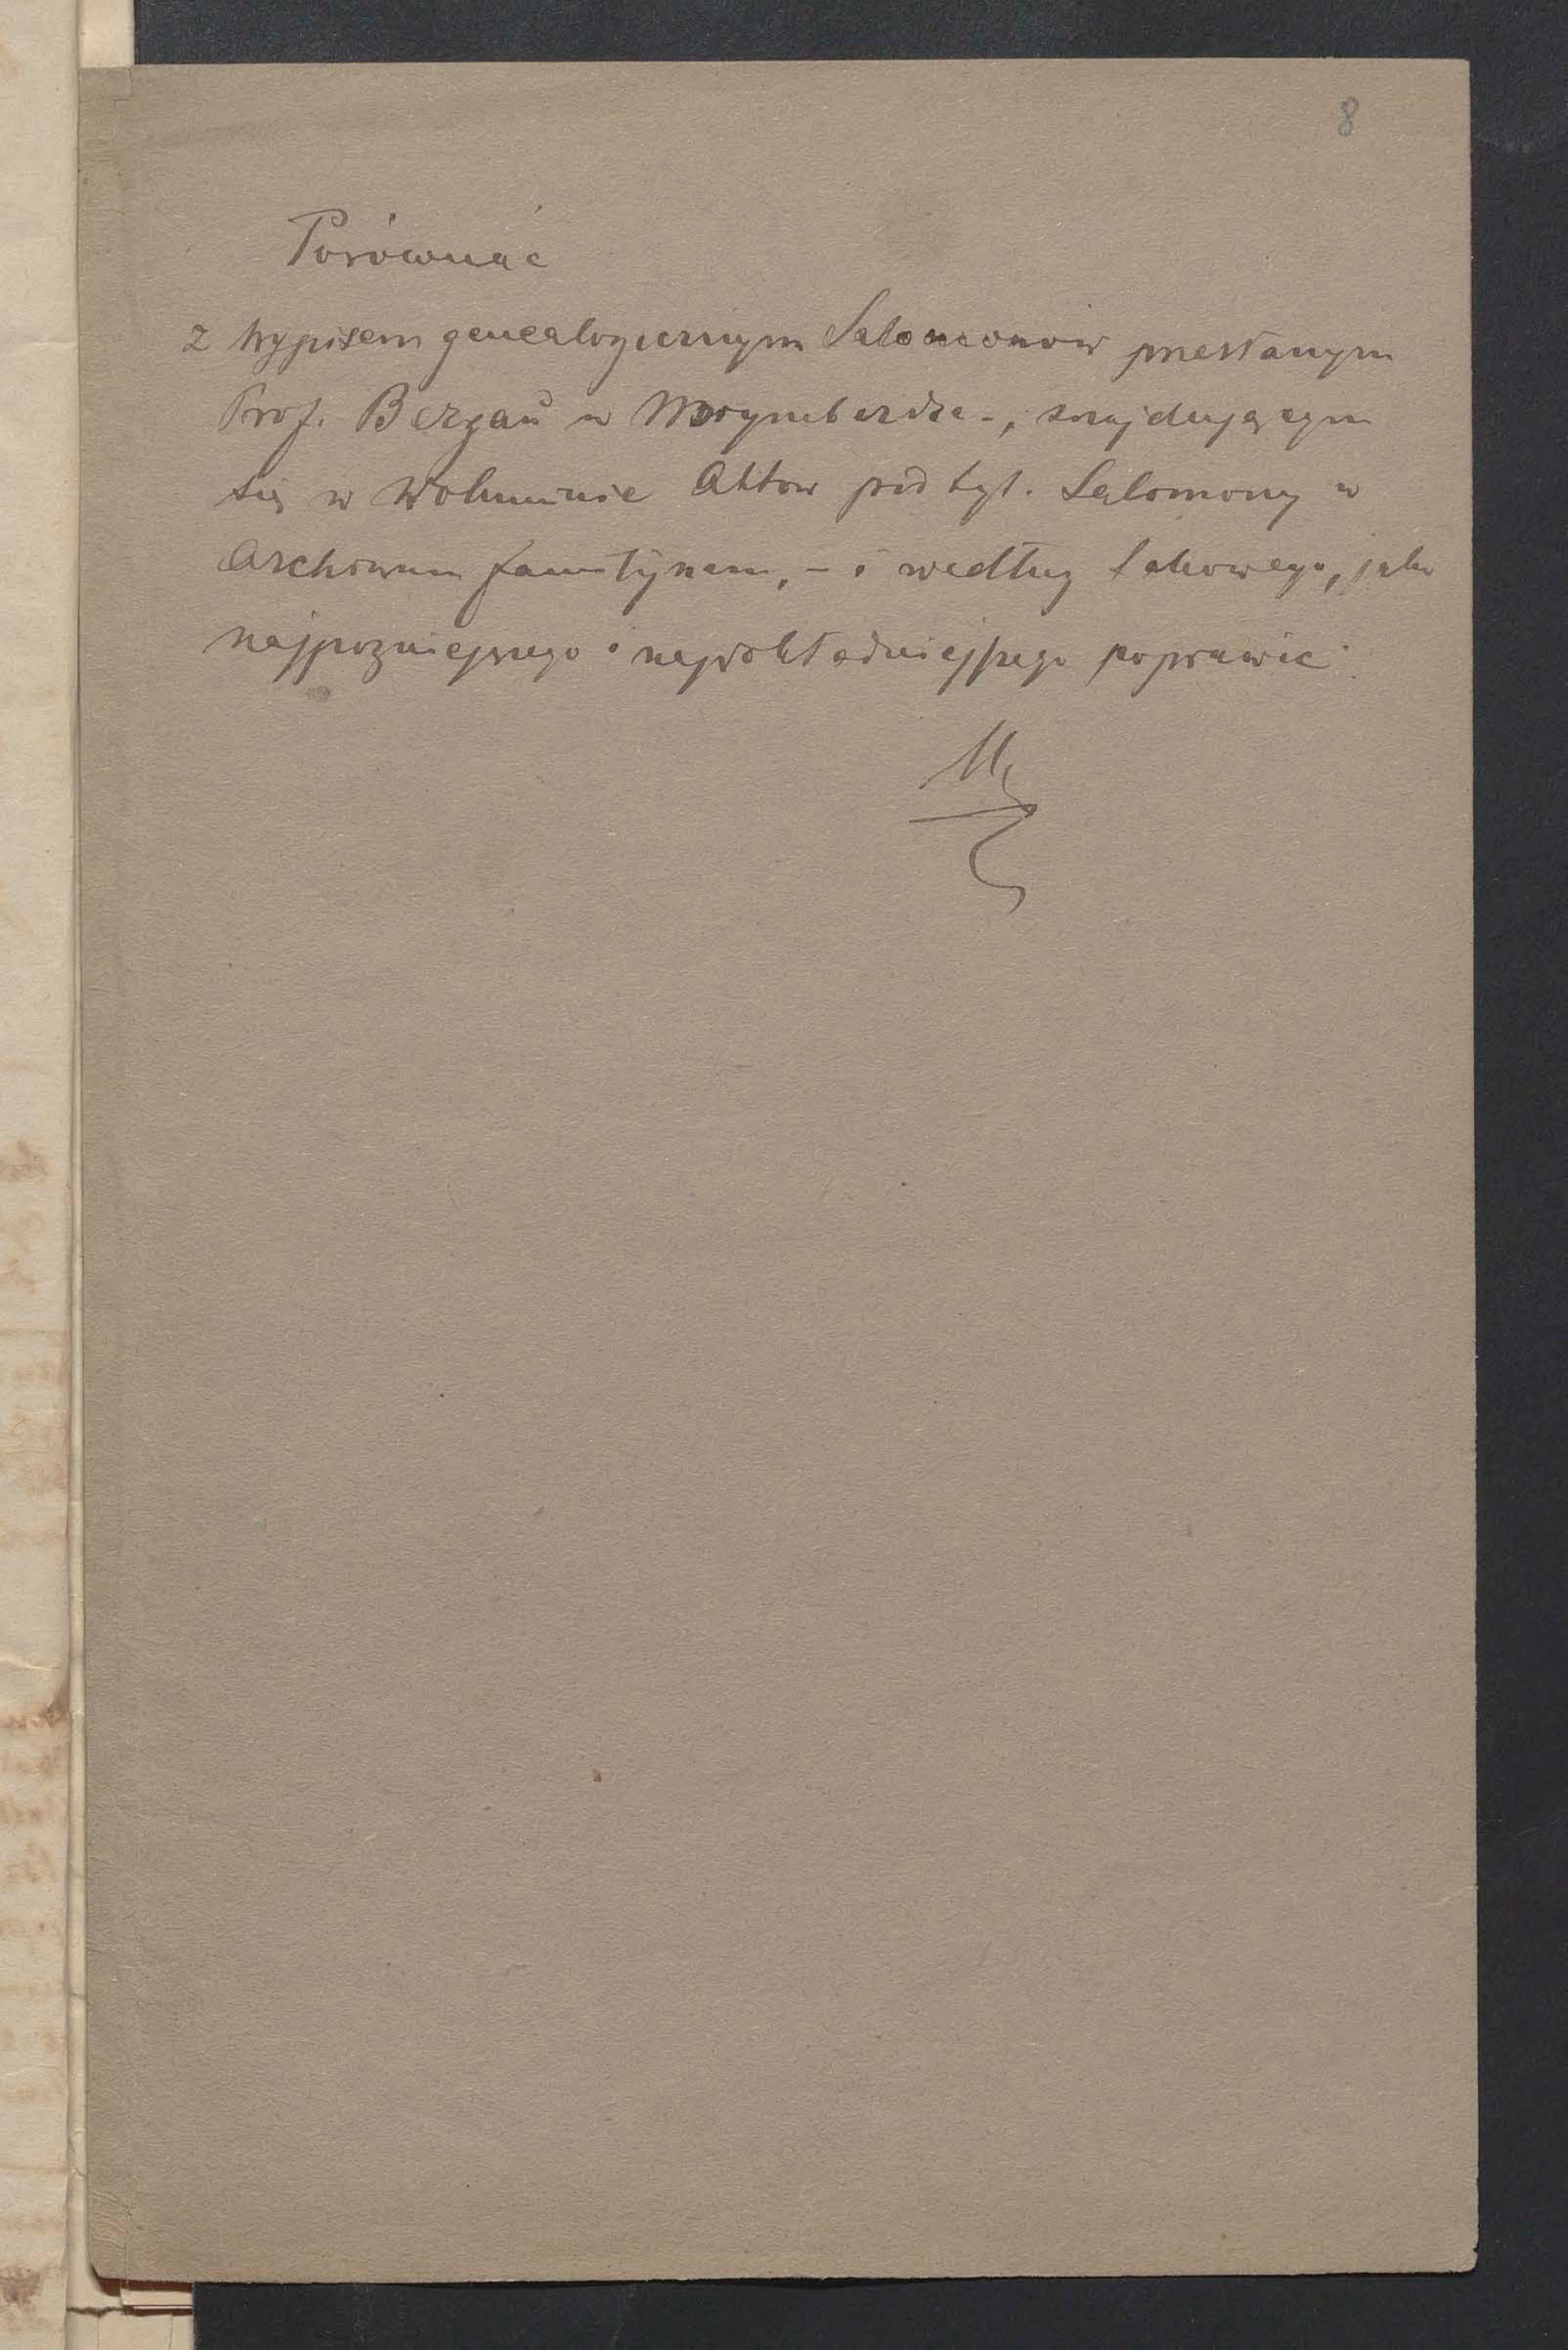 8
Porównać
z wypisem genealogicznym Salomonów przesłanym
Prof. Bergau w Norymberdze -, znajdującym
się w Woluminie Aktow pod tyt. Salomony w
Archiwum familijnem, - i według takowego, jako
najpozniejszego i najdokładniejszego poprawić.